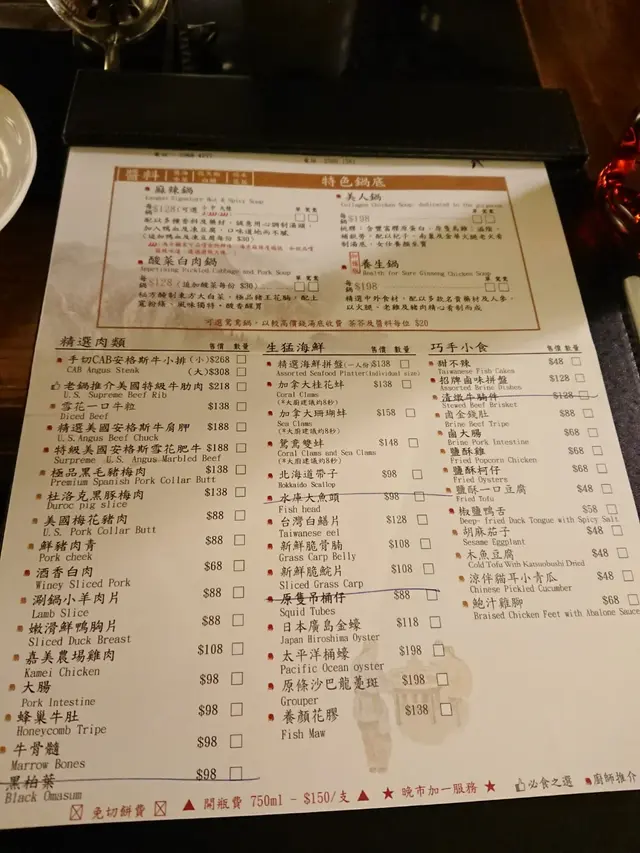 醬料
特色鍋底
麻辣鍋
Signature Hot & Spicy Soup
每鍋 $128
配以多種香料及藥材，誠意用心調制湯頭，
加入鴨血及凍豆腐，口味道地而不膩
(追加鴨血及凍豆腐每份 $30)
美人鍋
Collagen Chicken Soup, dedicated to the gorgeous
每鍋 $198
酸菜白肉鍋
Appetising Pickled Cabbage and Pork Soup
每鍋 $128 (追加酸菜每份 $30)
秘方醃制東方大白菜，極品豬五花腩，配上
寬粉條，風味獨特，酸香醒胃
養生鍋
Health for Sure Ginseng Chicken Soup
每鍋 $198
精選中外食材，配以多款名貴藥材及人參，
以火腿，老雞及豬肉精心香制而成
可選鴛鴦鍋，以較高價錢湯底收費 茶芥及醬料每位 $20
精選肉類 售價 數量
手切CAB安格斯牛小排 (小)$268
CAB Angus Steak (大)$308
老鍋推介美國特級牛肋肉 $218
U.S. Supreme Beef Rib
雪花一口牛粒 $138
Diced Beef
精選美國安格斯牛肩胛 $188
U.S. Angus Beef Chuck
特級美國安格斯雪花肥牛 $188
Surpreme U.S. Angus Marbled Beef
極品黑毛豬梅肉 $138
Premium Spanish Pork Collar Butt
杜洛克黑豚梅肉 $138
Duroc pig slice
美國梅花豬肉 $88
U.S. Pork Collar Butt
鮮豬肉青 $88
Pork cheek
酒香白肉 $68
Winey Sliced Pork
涮鍋小羊肉片 $88
Lamb Slice
嫩滑鮮鴨胸片 $88
Sliced Duck Breast
嘉美農場雞肉 $108
Kamei Chicken
大腸 $98
Pork Intestine
蜂巢牛肚 $98
Honeycomb Tripe
牛骨髓 $98
Marrow Bones
黑柏葉 $98
Black Omasum
生猛海鮮 售價 數量
精選海鮮拼盤 (一人份) $138
Assorted Seafood Platter(Individual size)
加拿大桂花蚌 $138
Coral Clams
(*火鍋建議灼8秒)
加拿大珊瑚蚌 $158
Sea Clams
(*火鍋建議灼8秒)
鴛鴦雙蚌 $148
Coral Clams and Sea Clams
(*火鍋建議灼8秒)
北海道帶子 $98
Hokkaido Scallop
水庫大魚頭 $98
Fish head
台灣白鱔片 $128
Taiwanese eel
新鮮脆骨腩 $108
Grass Carp Belly
新鮮脆鯇片 $108
Sliced Grass Carp
原隻吊桶仔 $88
Squid Tubes
日本廣島金蠔 $118
Japan Hiroshima Oyster
太平洋桶蠔 $198
Pacific Ocean oyster
原條沙巴龍躉斑 $198
Grouper
養顏花膠 $138
Fish Maw
巧手小食 售價 數量
甜不辣 $48
Taiwanese Fish Cakes
招牌鹵味拼盤 $128
Assorted Brine Dishes
清燉牛腩件 $128
Stewed Beef Brisket
鹵金錢肚 $88
Brine Beef Tripe
鹵大腸 $68
Brine Pork Intestine
鹽酥雞 $68
Fried Popcorn Chicken
鹽酥柯仔 $68
Fried Oysters
鹽酥一口豆腐 $48
Fried Tofu
椒鹽鴨舌 $58
Deep-fried Duck Tongue with Spicy Salt
胡麻茄子 $48
Sesame Eggplant
木魚豆腐 $48
Cold Tofu With Katsuobushi Dried
涼伴貓耳小青瓜 $48
Chinese Pickled Cucumber
鮑汁雞腳 $68
Braised Chicken Feet with Abalone Sauce
免切餅費 ▲ 開瓶費 750ml - $150/支 ▲ ★ 晚市加一服務 ★ 必食之選 廚師推介